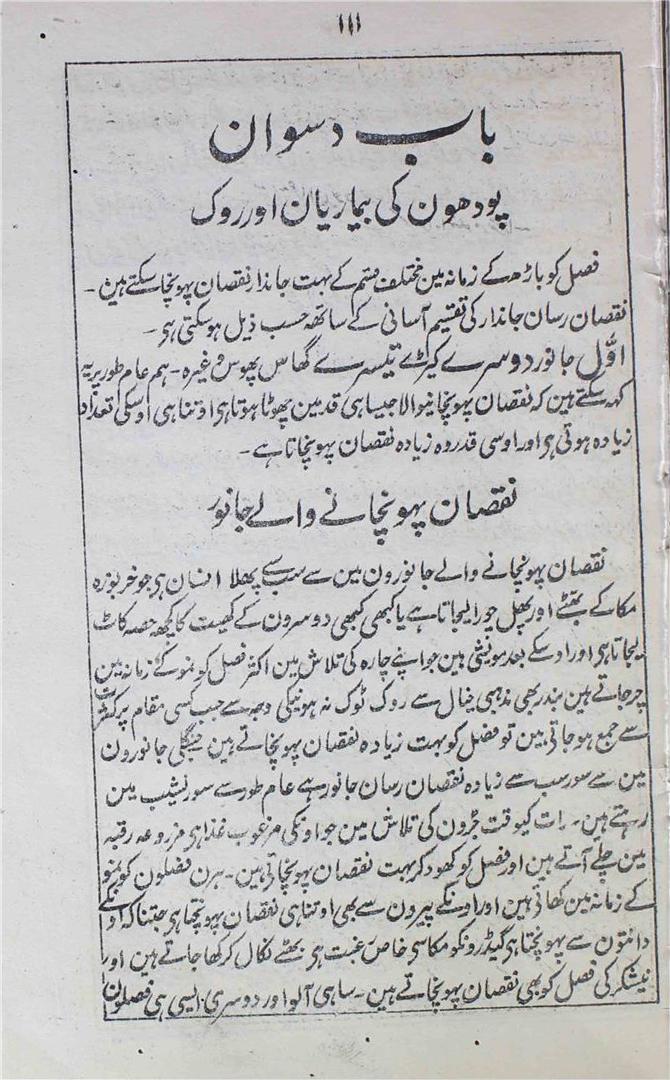 ۱۱۱
باب دسوان
پودھون کی بیماریان اور روک
فصل کو باڑھ کے زمانہ مین مختلف قسم کے بہت جاندار نقصان پہونچا سکتے ہین۔
نقصان رسان جاندار کی تقسیم آسانی کے ساتھہ حسب ذیل ہو سکتی ہی۔
اوّل جانور دوسرے کیڑے تیسرے گھاس پھوس وغیرہ۔ ہم عام طور پر یہ
کہہ سکتے ہین کہ نقصان پہونچانیوالا جیسا ہی قد مین چھوٹا ہوتا ہی اوتنا ہی اوسکی تعداد
زیادہ ہوتی ہی اور اوسی قدر وہ زیادہ نقصان پہونچاتا ہے۔
نقصان پہونچانے والے جانور
نقصان پہونچانے والے جانورون مین سے سب سے پہلا انسان ہی جو خربوزہ
مکا کے بھٹے اور پھل چورا لیجاتا ہے یا کبھی کبھی دوسرون کے کھیت کا کچھہ حصہ کاٹ
لیجاتا ہی اور اوسکے بعد مویشی ہین جو اپنے چارہ کی تلاش مین اکثر فصل کو نمو کے زمانہ مین
چر جاتے ہین بندر بھی مذہبی خیال سے روک ٹوک نہ ہونیکی وجہ سے جب کسی مقام پر کثرت
سے جمع ہو جاتی ہین تو فصل کو بہت زیادہ نقصان پہونچاتے ہین جنگلی جانورون
مین سے سور سب سے زیادہ نقصان رسان جانور ہے عام طور سے سور نشیب مین
رہتے ہین۔ رات کیوقت جڑون کی تلاش مین جو اونکی مرغوب غذا ہی مزروعہ رقبہ
مین چلے آتے ہین اور فصل کو کھود کر بہت نقصان پہونچاتی ہین۔ ہرن فصلون کو نمو
کے زمانہ مین کھاتی ہین اور اونکے پیرون سے بھی اوتنا ہی نقصان پہونچتا ہی جتنا کہ اونکے
دانتون سے پہونچتا ہی گیڈرونکو مکا سی خاص رغبت ہی بھٹے نکال کر کھا جاتے ہین اور
نیشکر کی فصل کو بھی نقصان پہونچاتے ہین۔ ساہی آلو اور دوسری ایسی ہی فصلون